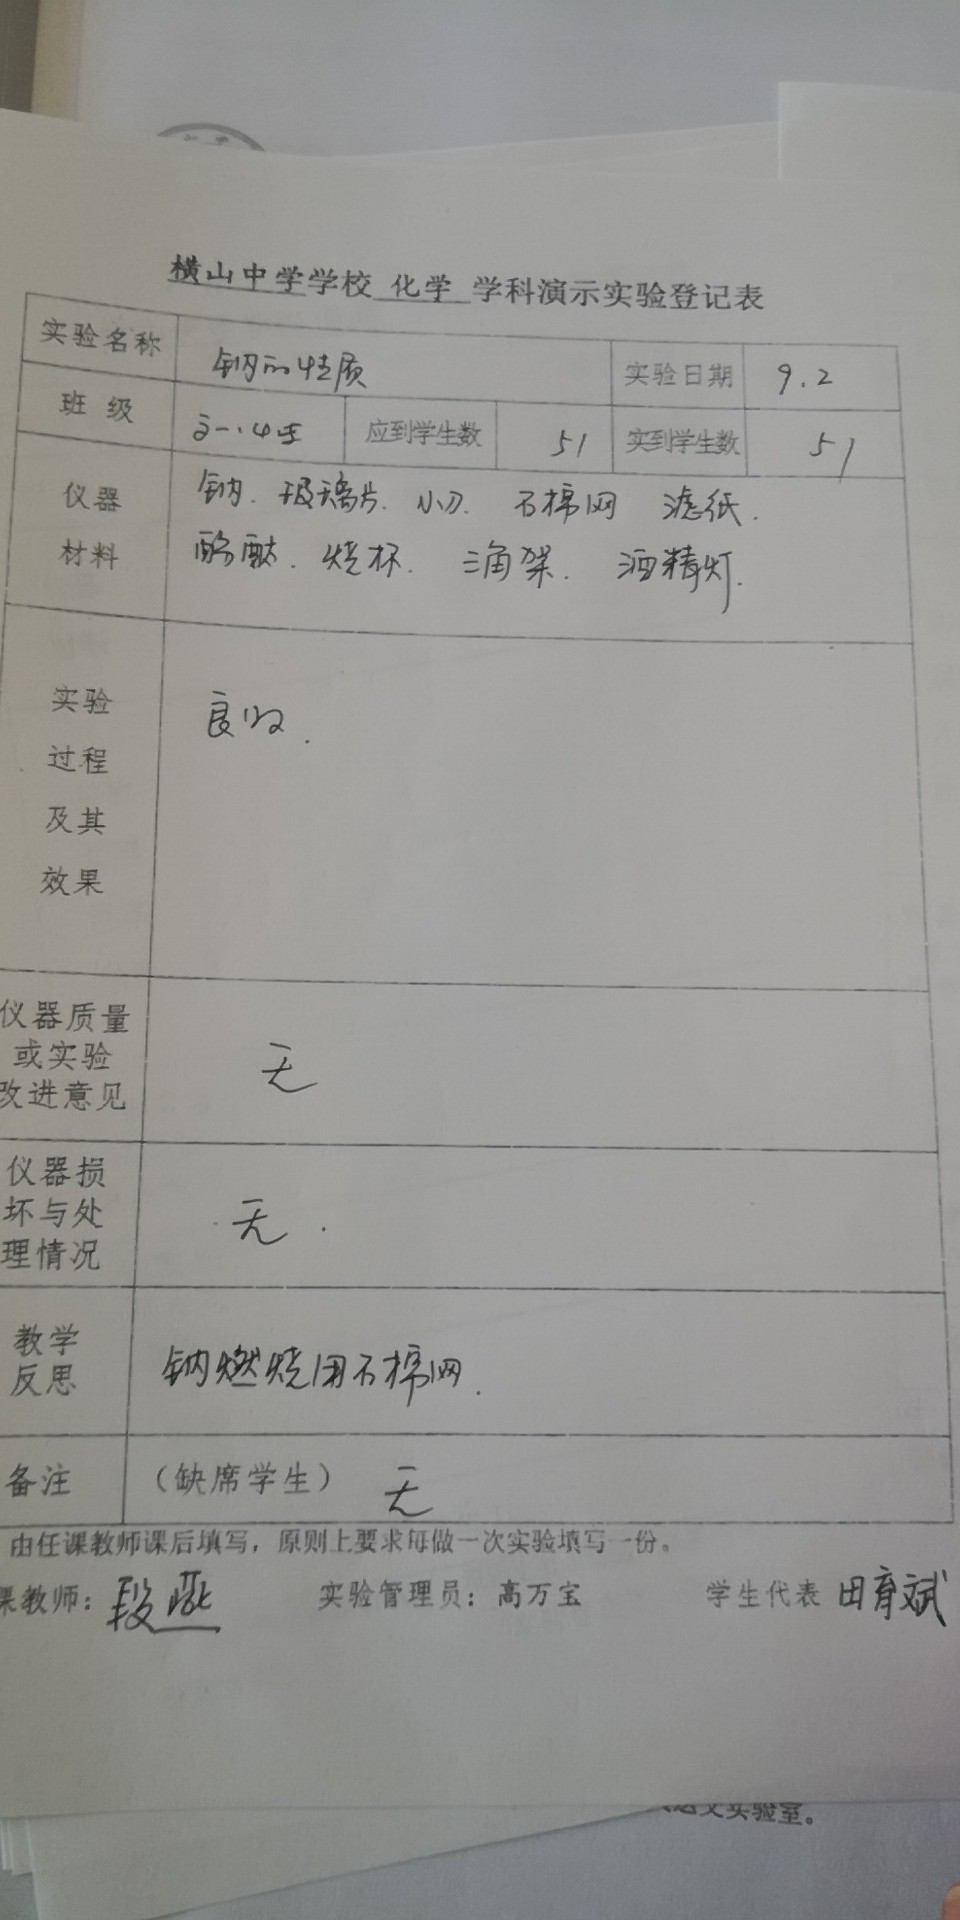 横山中学学校 化学 学科演示实验登记表
实验名称 钠的性质 实验日期 9.2
班级 应到学生数 51 实到学生数 51
仪器 钠. 玻璃片. 小刀. 石棉网 滤纸.
材料 酚酞. 烧杯. 三角架. 酒精灯.
实验 良好.
过程
及其
效果
仪器质量
或实验 无
改进意见
仪器损
坏与处 无.
理情况
教学
反思 钠燃烧用石棉网.
备注 (缺席学生) 无
由任课教师课后填写，原则上要求每做一次实验填写一份。
课教师: 段燕 实验管理员: 高万宝 学生代表 田育斌
实验室。